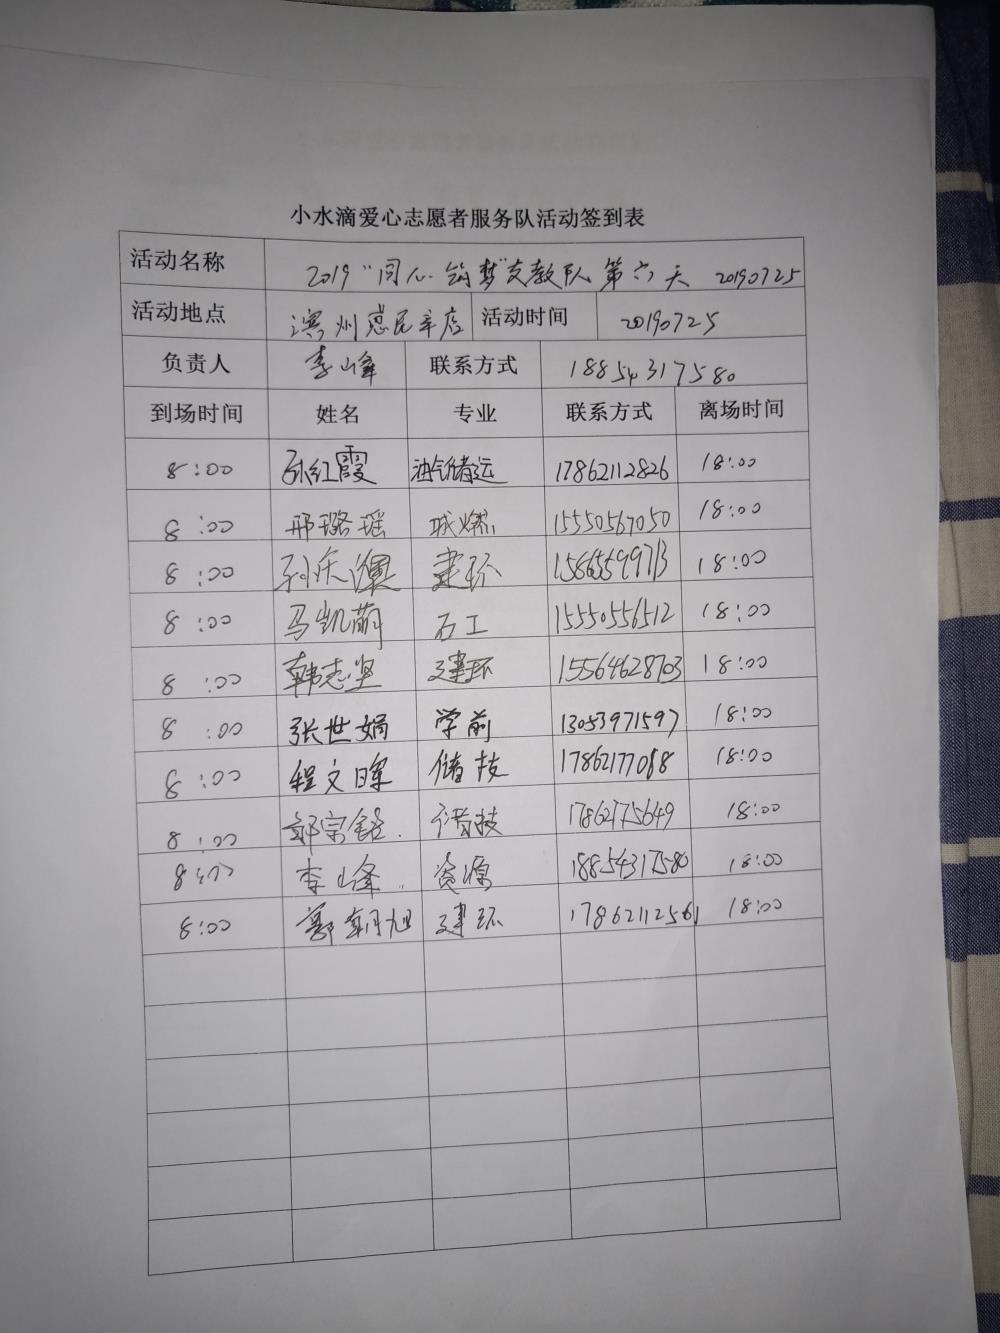 小水滴爱心志愿者服务队活动签到表
活动名称 2019“同心·筑梦”支教队第六天 20190725
活动地点 滨州惠民辛店 活动时间 20190725
负责人 李山峰 联系方式 18854317580
到场时间 姓名 专业 联系方式 离场时间
8:00 孙红霞 油气储运 17862112826 18:00
8:00 邢璐瑶 城燃 15550567050 18:00
8:00 孙庆 建环 15865599713 18:00
8:00 马凯萌 石工 15550556512 18:00
8:00 韩志坚 建环 15564628703 18:00
8:00 张世娟 学前 13053971597 18:00
8:00 程文晖 储技 17862177068 18:00
8:00 郭宗铭 储技 17862175649 18:00
8:00 李山峰 资源 18854317580 18:00
8:00 郭朝旭 建环 17862112561 18:00